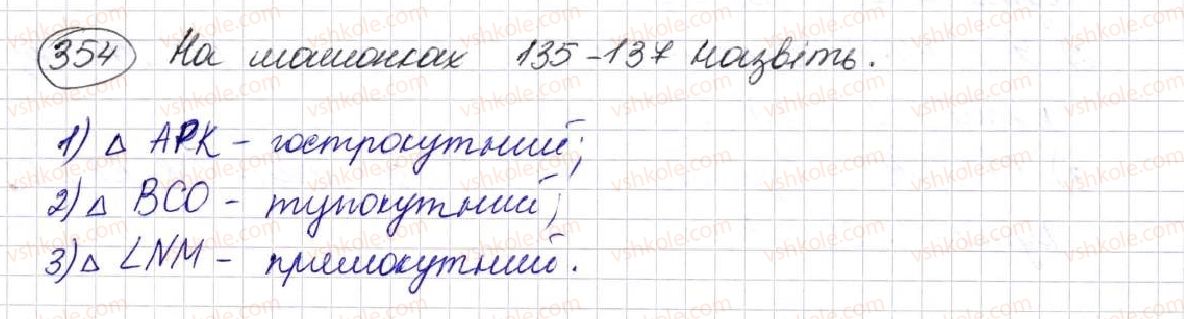 354 На малюнках 135-137 назвіть.
1) △ APK - гострокутний;
2) △ BCO - тупокутний;
3) △ LNM - прямокутний.